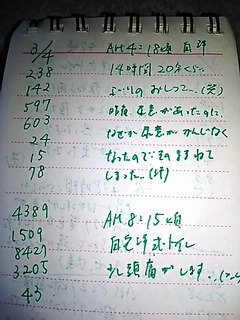 3/4 AM4:18頃 自排
238 14時間20分くらい
142 よいりのおしっこ…(笑)
597 昨夜尿意があったのに、
603 なぜか尿意がかんじなく
24 なったのでそのままねて
15 しまった…(汗)
78
4389 AM8:15頃
1509 自己
8427 トイレ
3205 少し頭痛がします…
43